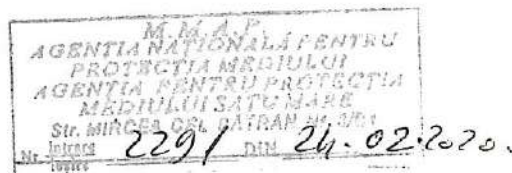 M. M. A. P
AGENȚIA NAȚIONALĂ PENTRU
PROTECȚIA MEDIULUI
AGENȚIA PENTRU PROTECȚIA
MEDIULUI SATU MARE
Str. MIRCEA CEL BATRAN Nr. 8/B1
Nr. Intrare 2291 DIN 24.02.2020.
Ieșire